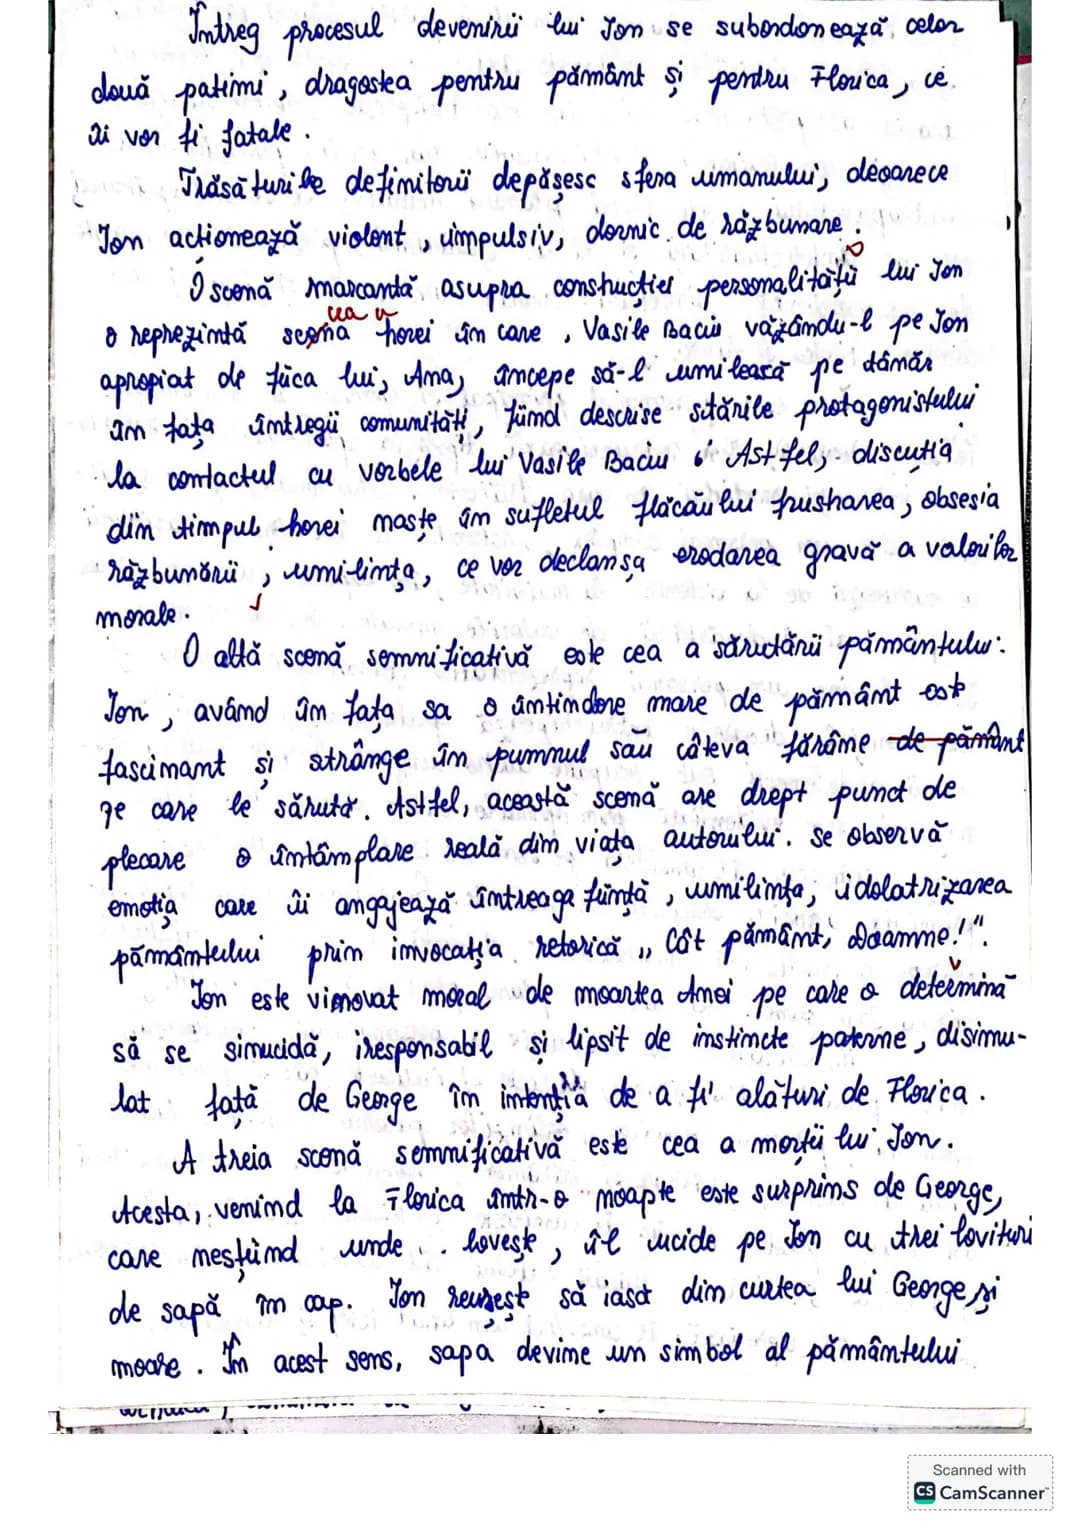 Întreg procesul devenirii lui Ion se subordonează celor
două patimi, dragostea pentru pământ și pentru Florica, ce
îi vor fi fatale.
Trăsăturile definitorii depășesc sfera umanului, deoarece
Ion acționează violent, impulsiv, dornic de răzbunare.
O scenă marcantă asupra construcției personalității lui Ion
cea a
o reprezintă scena horei în care, Vasile Baciu văzându-l pe Ion
apropiat de fiica lui, Ana, începe să-l umilească pe tânăr
în fața întregii comunități, fiind descrise stările protagonistului
la contactul cu vorbele lui Vasile Baciu. Astfel, discuția
din timpul horei naște în sufletul flăcăului frustrarea, obsesia
răzbunării, umilința, ce vor declanșa erodarea gravă a valorilor
morale.
O altă scenă semnificativă este cea a sărutării pământului:
Ion, având în fața sa o întindere mare de pământ este
fascinant și strânge în pumnul său câteva fărâme de pământ
pe care le sărută. Astfel, această scenă are drept punct de
plecare o întâmplare reală din viața autorului. Se observă
emoția care îi angajează întreaga ființă, umilința, idolatrizarea
pământului prin invocația retorică „Cât pământ, Doamne!".
Ion este vinovat moral de moartea Anei pe care o determină
să se sinucidă, iresponsabil și lipsit de instincte paterne, disimu-
lat față de George în intenția de a fi alături de Florica.
A treia scenă semnificativă este cea a morții lui Ion.
Acesta, venind la Florica într-o noapte este surprins de George,
care neștiind unde lovește, îl ucide pe Ion cu trei lovituri
de sapă în cap. Ion reușește să iasă din curtea lui George și
moare. În acest sens, sapa devine un simbol al pământului
Scanned with
CS CamScanner